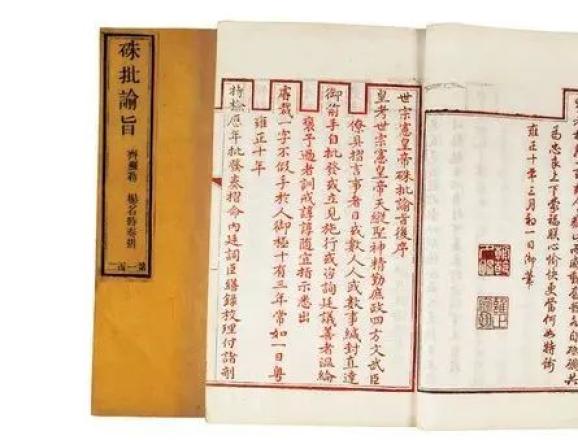 為忠良上下蒙福朕心愉快更當何如特諭
雍正十年三月初一日御筆
世宗憲皇帝硃批諭旨後序
皇考世宗憲皇帝天縱聖神精勤庶政四方文武臣
僚具摺言事者日或數人人或數事緘封直達
御前手自批發或立見施行或咨詢廷議善者溫綸
褒予過者訓戒諄諄隨宜指示悉出
睿裁一字不假手於人御極十有三年常如一日粵
雍正十年
特檢歷年批發奏摺命內廷詞臣繕錄校理付諸剞
硃批諭旨
齊蘓勒 楊名時奏摺